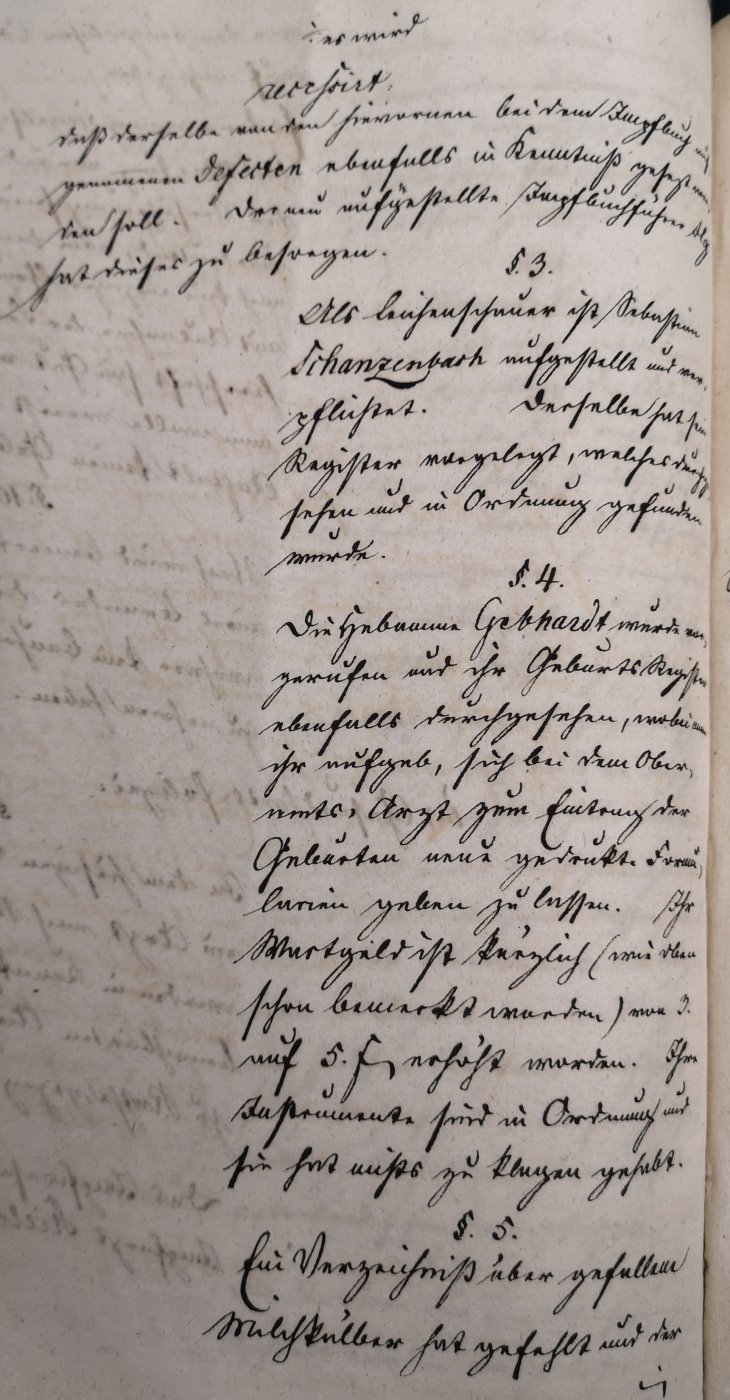 : es wird
recessirt:
daß derselbe von den hievornen bei dem Impfbuch
genommenen Defecten ebenfalls in Kenntniß gesezt wer-
den soll. Der neu aufgestellte Impfbuchführer
hat dieses zu besorgen.
§. 3.
Als Leichenschauer ist Sebastian
Schanzenbach aufgestellt und ver-
pflichtet. Derselbe hat sein
Register vorgelegt, welches durchge-
sehen und in Ordnung gefunden
wurde.
§. 4.
Die Hebamme Gebhardt wurde vor-
gerufen und ihr Geburts Register
ebenfalls durchgesehen, wobei man
ihr aufgab, sich bei dem Ober-
amts-Arzt zum Eintrag der
Geburten neue gedrukte Formu-
larien geben zu lassen. Ihr
Wartgeld ist kürzlich (wie oben
schon bemerkt worden) von 3.
auf 5. f erhöht worden. Ihre
Instrumente sind in Ordnung und
sie hat nichts zu klagen gehabt.
§. 5.
Ein Verzeichniß über gefallene
Milchkälber hat gefehlt und der